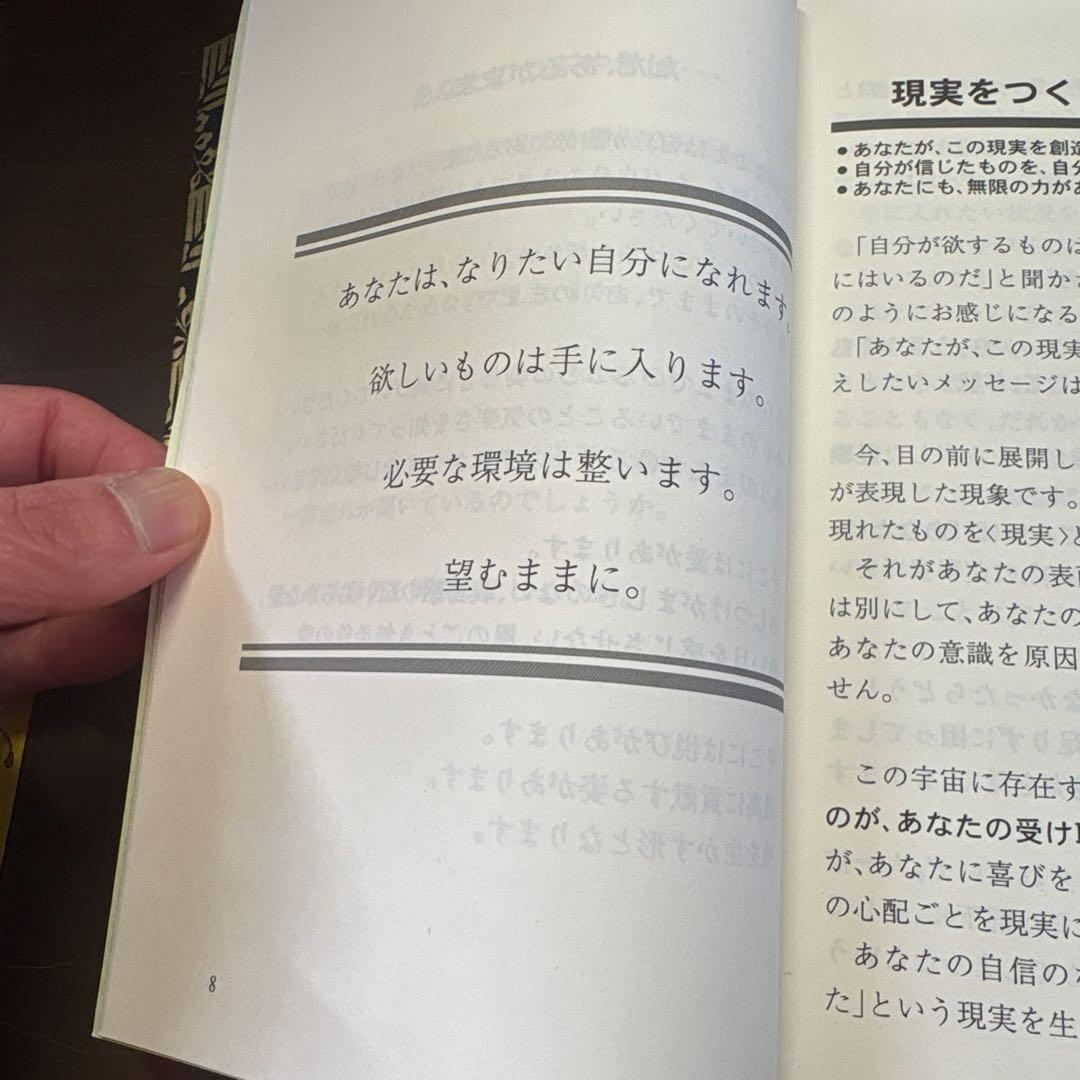 あなたは、なりたい自分になれます。
欲しいものは手に入ります。
必要な環境は整います。
望むままに。
8
現実をつく
●あなたが、この現実を創造
●自分が信じたものを、自分
●あなたにも、無限の力があ
「自分が欲するものは
にはいるのだ」と聞か
のようにお感じになる
「あなたが、この現実
えしたいメッセージは
今、目の前に展開し
が表現した現象です。
現れたものを〈現実〉と
それがあなたの表面
は別にして、あなたの
あなたの意識を原因
せん。
この宇宙に存在す
のが、あなたの受け取
が、あなたに喜びを
の心配ごとを現実に
あなたの自信のな
た」という現実を生